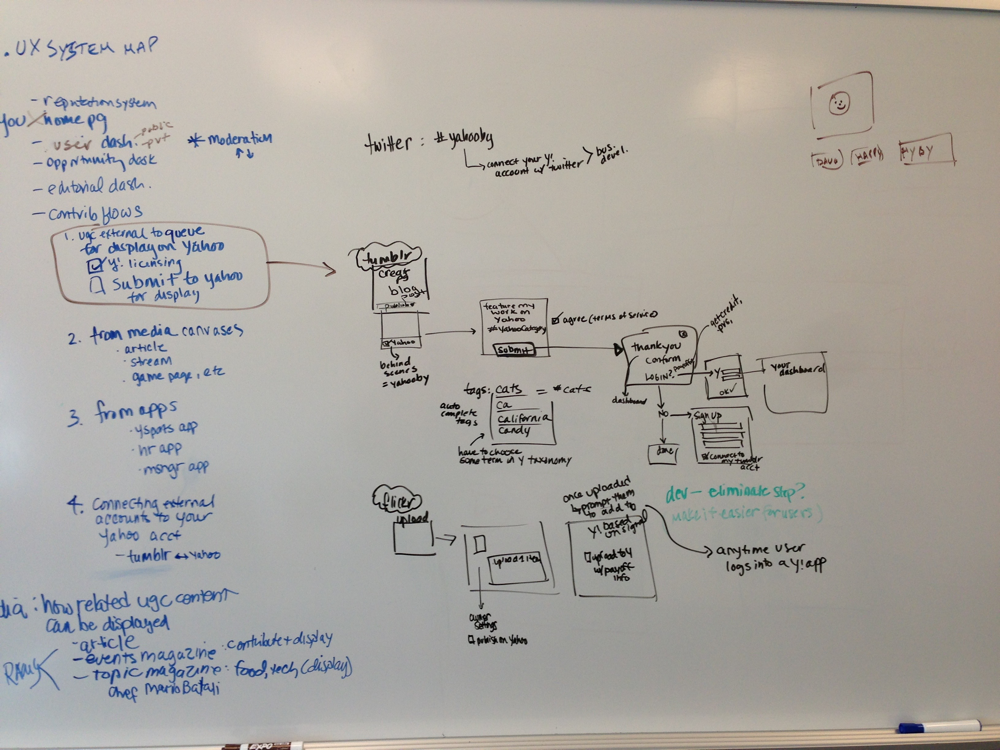 . UX SYSTEM MAP
- reputation system
you home pg
- user dash. public
- pvt
* moderation
- opportunity desk
- editorial dash.
- contrib flows
1. ugc external to queue
for display on Yahoo
Y! licensing
submit to yahoo
for display
2. from media canvases
· article
· stream
· game page, etc
3. from apps
· ysports app
· hr app
· msngr app
4. connecting external
accounts to your
Yahoo acct
- tumblr ↔ Yahoo
dia: how related ugc content
can be displayed
- article
- events magazine: contribute + display
- topic magazine: food, tech, (display)
chef Mario Batali
twitter: #yahooby
connect your y!
account w/ twitter
bus.
devel.
tumblr
create
blog
post
publish
Yahoo
behind
scenes
= yahooby
feature my
work on
Yahoo
#YahooCategory
submit
agree (terms of service)
thank you
confirm
LOGIN?
get credit,
dashboard
NO
done
Y
OK
your
dashboard
Sign up
connect to
my tumblr
acct
tags: cats = *cats
auto
complete
tags
ca
california
candy
have to choose
some term in Y taxonomy
flickr
upload
settings
publish on Yahoo
once uploaded
prompt them
to add to
Y! based
on signal
upload to Y
w/ payoff
info
dev - eliminate step?
make it easier (for users)
anytime user
logs into a Y! app
DAVE
HAPPY
EXPO